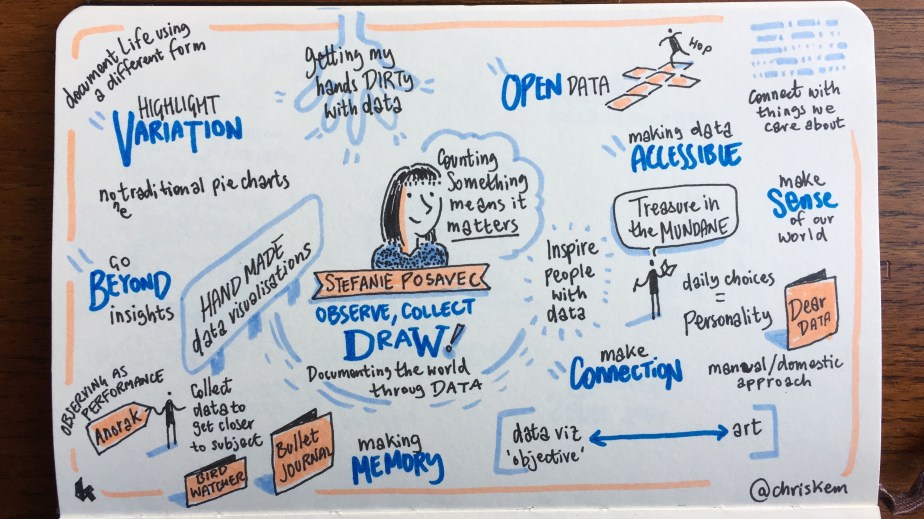 document Life using
a different form
getting my
hands DIRTY
with data
OPEN DATA
Hop
Connect with
things we
care about
HIGHLIGHT
VARIATION
making data
ACCESSIBLE
no traditional pie charts
^e
Counting
Something
means it
matters
Treasure in
the MUNDANE
make
Sense
of our
world
GO
BEYOND
insights
HAND MADE
data visualisations
STEFANIE POSAVEC
OBSERVE, COLLECT
DRAW!
Documenting the world
throug DATA
Inspire
People
with
data
daily choices
=
Personality
Dear
DATA
make
CONNECTION
manual/domestic
approach
OBSERVING AS
PERFORMANCE
Anorak
Collect
data to
get closer
to subject
BIRD
WATCHER
Bullet
JOURNAL
making
MEMORY
data viz
'objective'
art
@chriskem